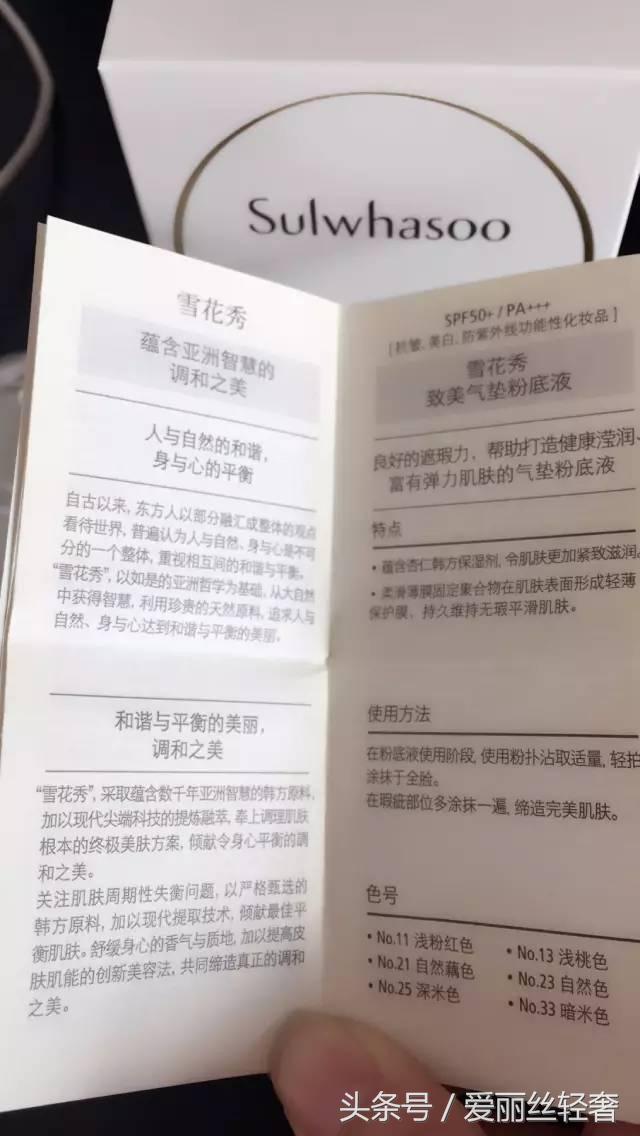 Sulwhasoo
雪花秀
蕴含亚洲智慧的
调和之美
人与自然的和谐,
身与心的平衡
自古以来, 东方人以部分融汇成整体的观点
看待世界, 普遍认为人与自然、身与心是不可
分的一个整体, 重视相互间的和谐与平衡。
“雪花秀”, 以如是的亚洲哲学为基础, 从大自然
中获得智慧, 利用珍贵的天然原料, 追求人与
自然、身与心达到和谐与平衡的美丽。
和谐与平衡的美丽,
调和之美
“雪花秀”, 采取蕴含数千年亚洲智慧的韩方原料,
加以现代尖端科技的提炼融萃, 奉上调理肌肤
根本的终极美肤方案, 倾献令身心平衡的调
和之美。
关注肌肤周期性失衡问题, 以严格甄选的
韩方原料, 加以现代提取技术, 倾献最佳平
衡肌肤。舒缓身心的香气与质地, 加以提高皮
肤肌能的创新美容法, 共同缔造真正的调和
之美。
SPF50+ / PA+++
[抗皱、美白、防紫外线功能性化妆品]
雪花秀
致美气垫粉底液
良好的遮瑕力, 帮助打造健康滢润、
富有弹力肌肤的气垫粉底液
特点
• 蕴含杏仁韩方保湿剂, 令肌肤更加紧致滋润。
• 柔滑薄膜固定聚合物在肌肤表面形成轻薄
保护膜, 持久维持无瑕平滑肌肤。
使用方法
在粉底液使用阶段, 使用粉扑沾取适量, 轻拍
涂抹于全脸。
在瑕疵部位多涂抹一遍, 缔造完美肌肤。
色号
• No.11 浅粉红色 • No.13 浅桃色
• No.21 自然藕色 • No.23 自然色
• No.25 深米色 • No.33 暗米色
头条号 / 爱丽丝轻奢